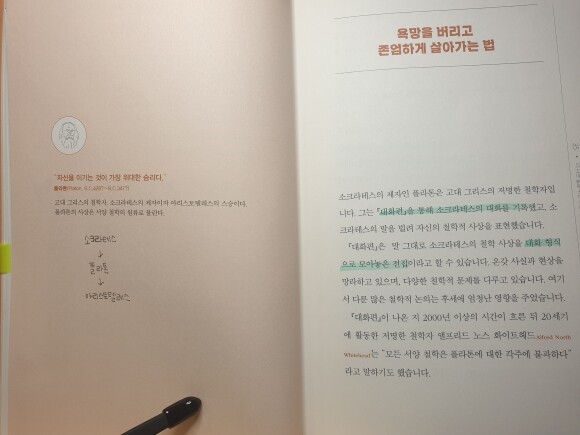 "자신을 이기는 것이 가장 위대한 승리다."
플라톤(Platon, B.C.428?~B.C.347?)
고대 그리스의 철학자. 소크라테스의 제자이자 아리스토텔레스의 스승이다.
플라톤의 사상은 서양 철학의 원류로 불린다.
소크라테스
↓
플라톤
↓
아리스토텔레스
욕망을 버리고
존엄하게 살아가는 법
소크라테스의 제자인 플라톤은 고대 그리스의 저명한 철학자입
니다. 그는 『대화편』을 통해 소크라테스의 대화를 기록했고, 소
크라테스의 말을 빌려 자신의 철학적 사상을 표현했습니다.
『대화편』은 말 그대로 소크라테스의 철학 사상을 대화 형식
으로 모아놓은 전집이라고 할 수 있습니다. 온갖 사실과 현상을
망라하고 있으며, 다양한 철학적 문제를 다루고 있습니다. 여기
서 다룬 많은 철학적 논의는 후세에 엄청난 영향을 주었습니다.
『대화편』이 나온 지 2000년 이상의 시간이 흐른 뒤 20세기
에 활동한 저명한 철학자 앨프리드 노스 화이트헤드Alfred North
Whitehead는 "모든 서양 철학은 플라톤에 대한 각주에 불과하다"
라고 말하기도 했습니다.